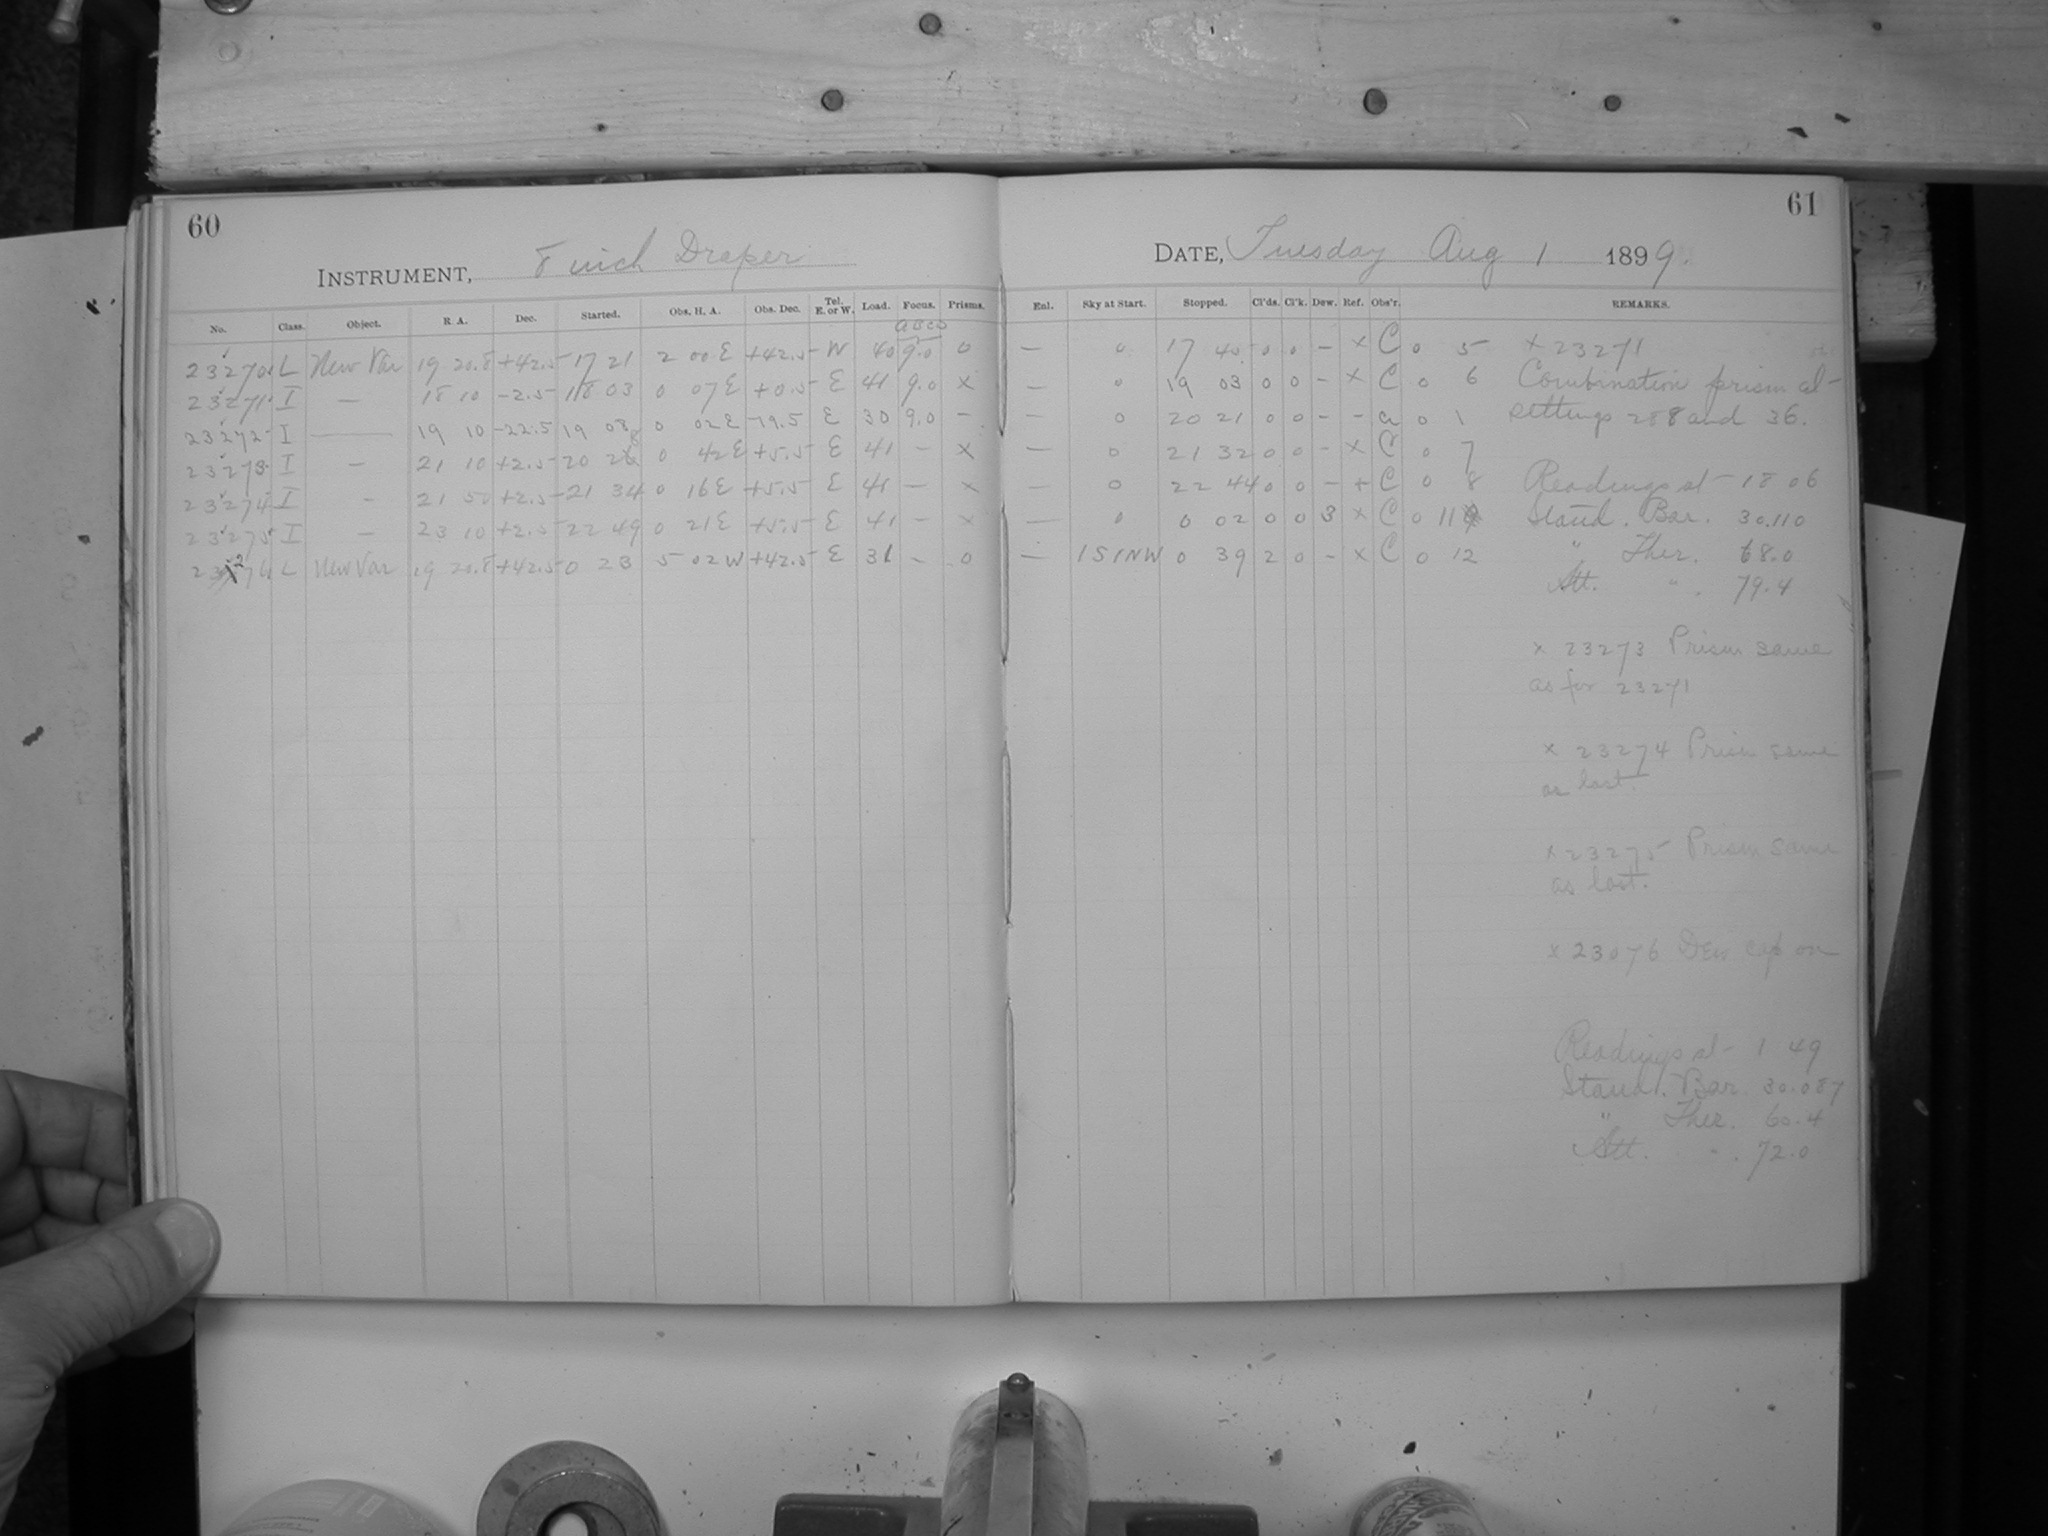 60
61
INSTRUMENT, 8 inch Draper
DATE, Tuesday Aug 1 1899.
No. Class. Object. R. A. Dec. Started. Obs. H. A. Obs. Dec. Tel. E. or W. Load. Focus. Prisms. Enl. Sky at Start. Stopped. Cl'ds. Cl'k. Dew. Ref. Obs'r. REMARKS.
23270 L New Var 19 20.8 +42.5 17 21 2 00 E +42.5 W 40 9.0 0 — 0 17 40 0 0 - x C 0 5 x 23271
23271 I — 18 10 -2.5 18 03 0 07 E +0.5 E 41 9.0 x — 0 19 03 0 0 - x C 0 6 Combination prism at
23272 I — 19 10 -22.5 19 08 0 02 E -19.5 E 30 9.0 - — 0 20 21 0 0 - - a 0 1 settings 288 and 36.
23273 I — 21 10 +2.5 20 28 0 42 E +5.5 E 41 - x — 0 21 32 0 0 - x C 0 7
23274 I - 21 50 +2.5 21 34 0 16 E +5.5 E 41 — x — 0 22 44 0 0 - + C 0 8 Readings at 18 06
23275 I — 23 10 +2.5 22 49 0 21 E +5.5 E 41 - x — 0 0 02 0 0 3 x C 0 11 Stand. Bar. 30.110
23276 L New Var 19 20.8 +42.5 0 23 5 02 W +42.5 E 31 - 0 — 1 S 1 NW 0 39 2 0 - x C 0 12 " Ther. 68.0
Att. " . 79.4
x 23273 Prism same
as for 23271
x 23274 Prism same
as last.
x 23275 Prism same
as last.
x 23076 Dew cap on
Readings at 1 49
Stand. Bar 30.087
" Ther. 60.4
Att. " . 72.0